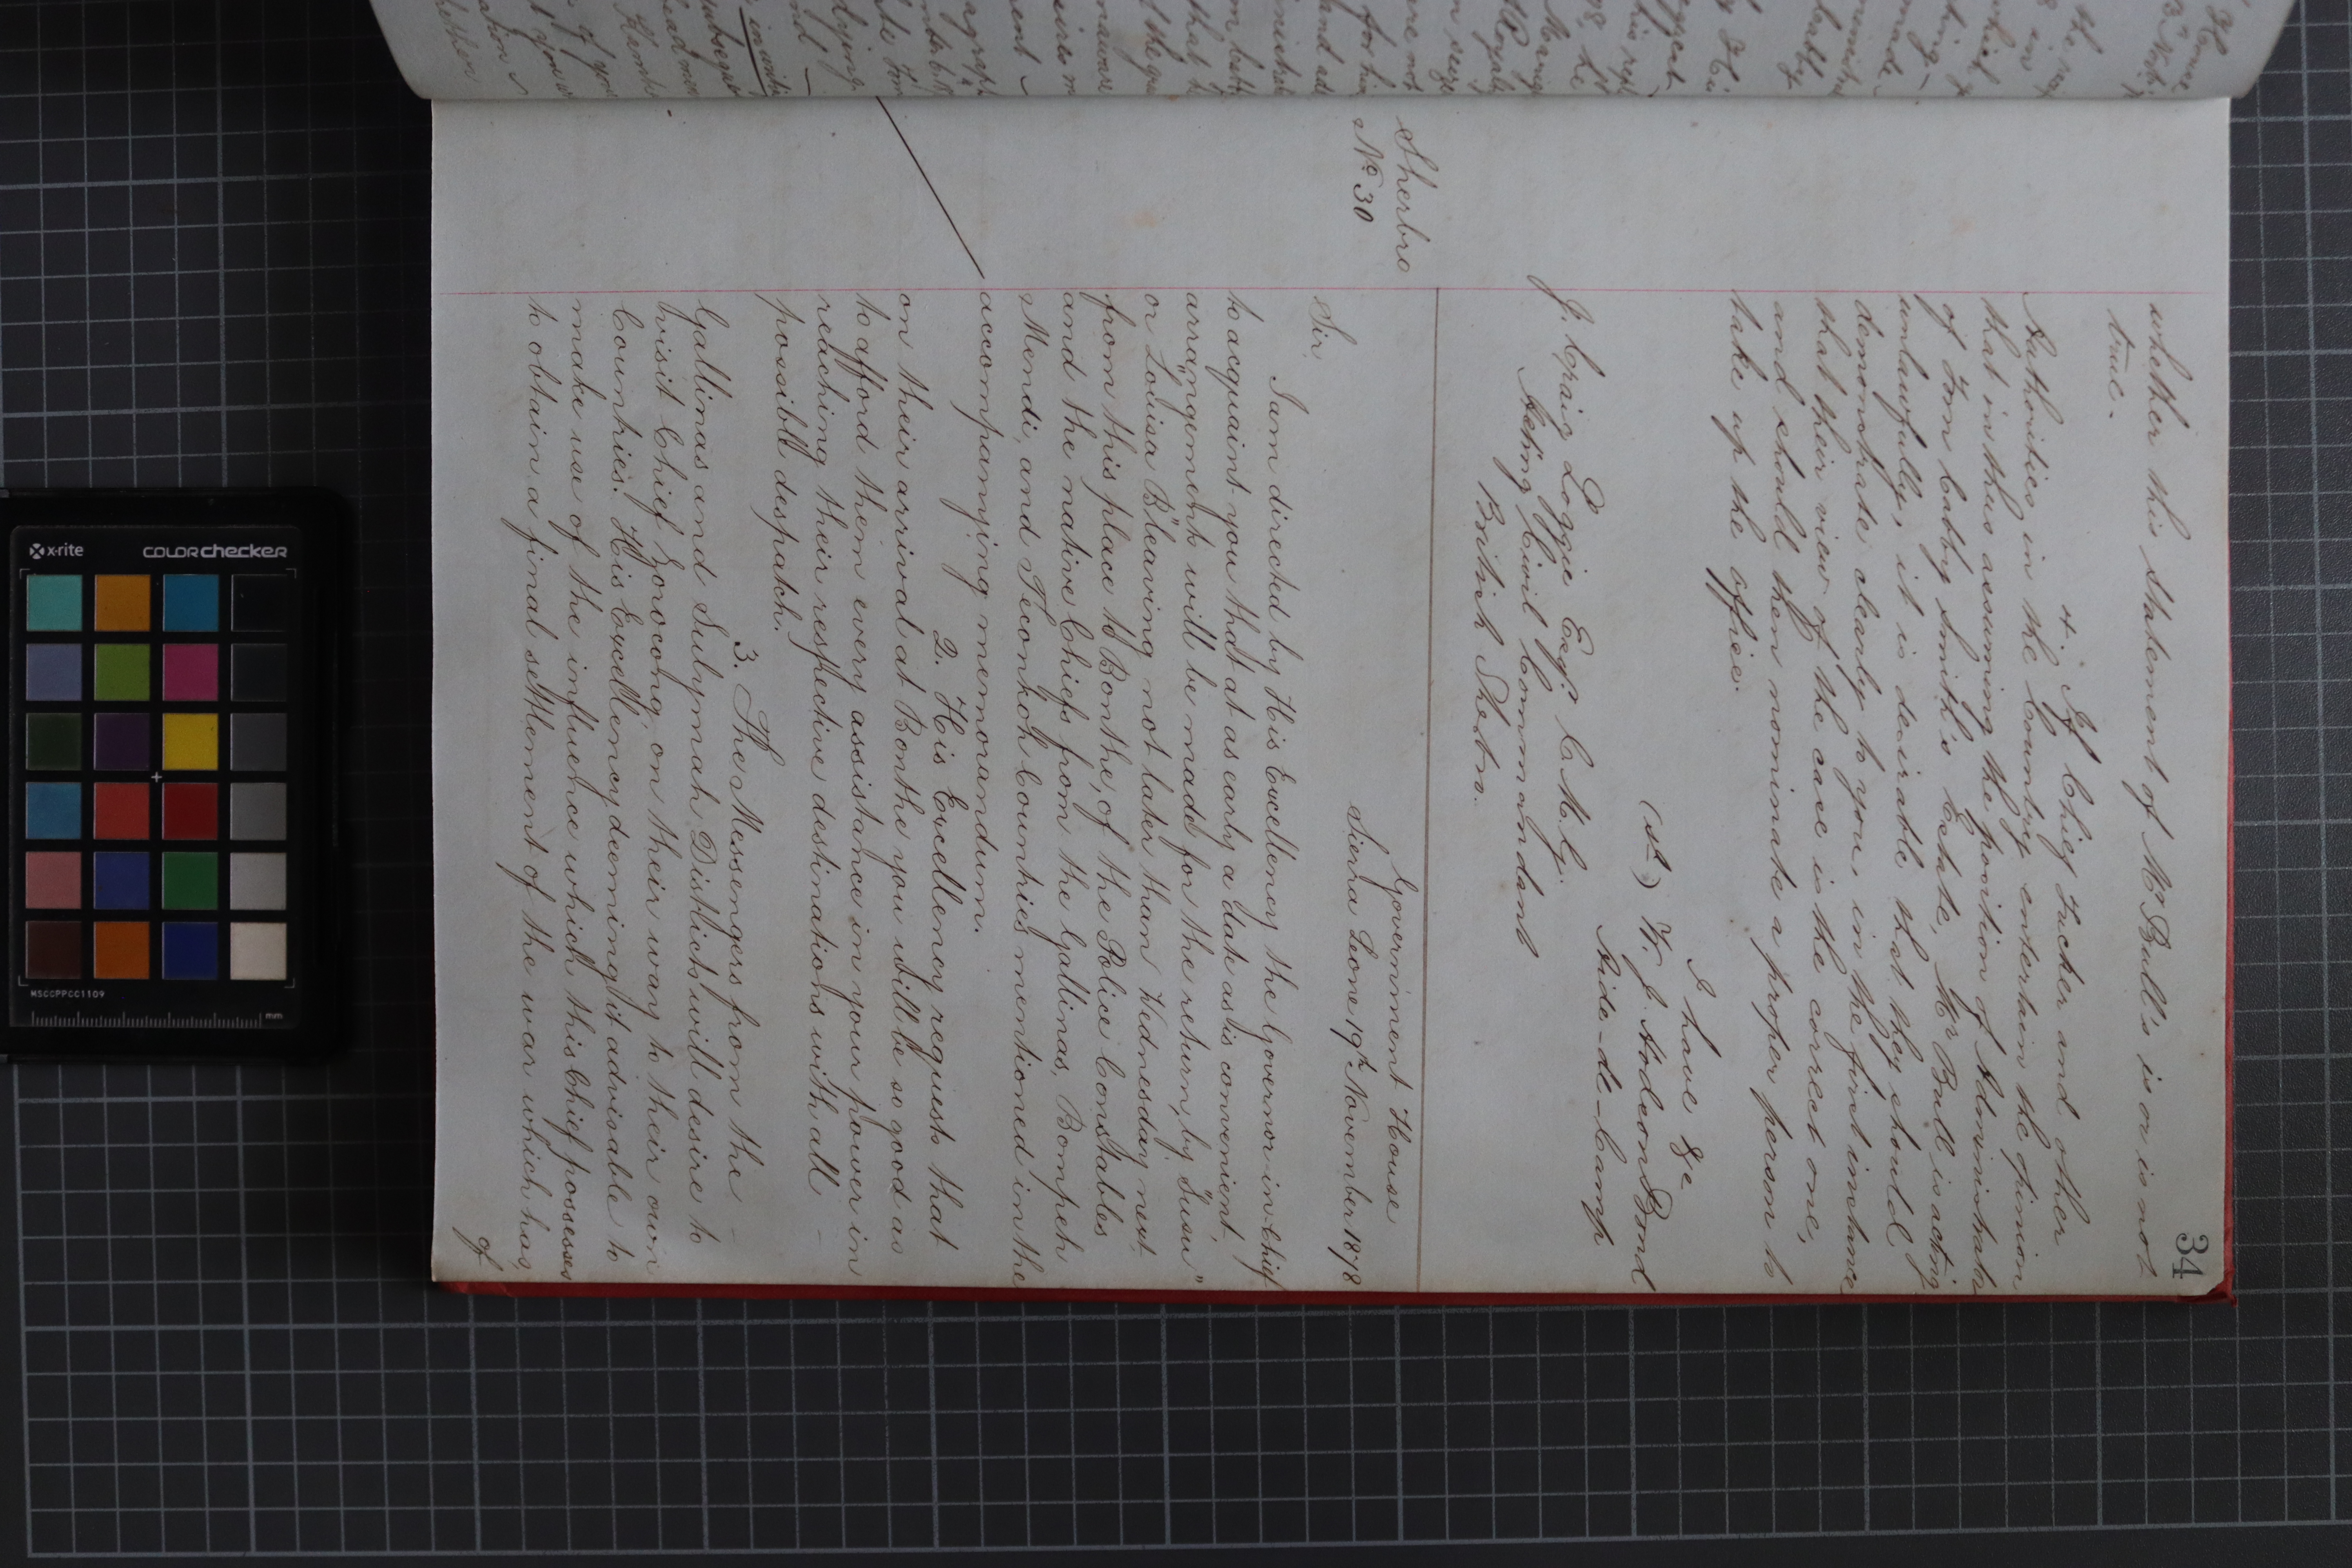 34
whether this statement of Mr Bull's is or is not
true.
4. If Chief Tucker and other
Authorities in the Country entertain the opinion
that in thus assuming the position of Administrator
of Tom Cabby Smith's Estate, Mr Bull is acting
unlawfully, it is desirable that they should
demonstrate clearly to you, in the first instance
that their view of the case is the correct one,
and should then nominate a proper person to
take up the office.
I have &c
(sd) W. J. Bond
Aide-de-Camp
J. Craig Loggie Esq. C.M.G.
Acting Civil Commandant
British Sherbro.
Sherbro
No 30
Government House
Sierra Leone 19th November 1878
Sir
I am directed by His Excellency the Governor-in-Chief
to acquaint you that at as early a date as is convenient,
arrangements will be made for the return, by "Susu"
or "Loduisa B" leaving not later than Wednesday next
from this place to Bonthe, of the Police Constables
and the native Chiefs from the Gallinas, Bompeh
Mendi, and Teconkoh Countries mentioned in the
accompanying memorandum.
2. His Excellency requests that
on their arrival at Bonthe you will be so good as
to afford them every assistance in your power in
reaching their respective destinations with all
possible despatch.
3. The Messengers from the
Gallinas and Sulymah Districts will desire to
visit Chief Zorocong, on their way to their own
Countries. His Excellency deeming it advisable to
make use of the influence which this Chief possesses
to obtain a final settlement of the war which has,
of
x-rite
colorchecker
MSCCPPCC1109
mm